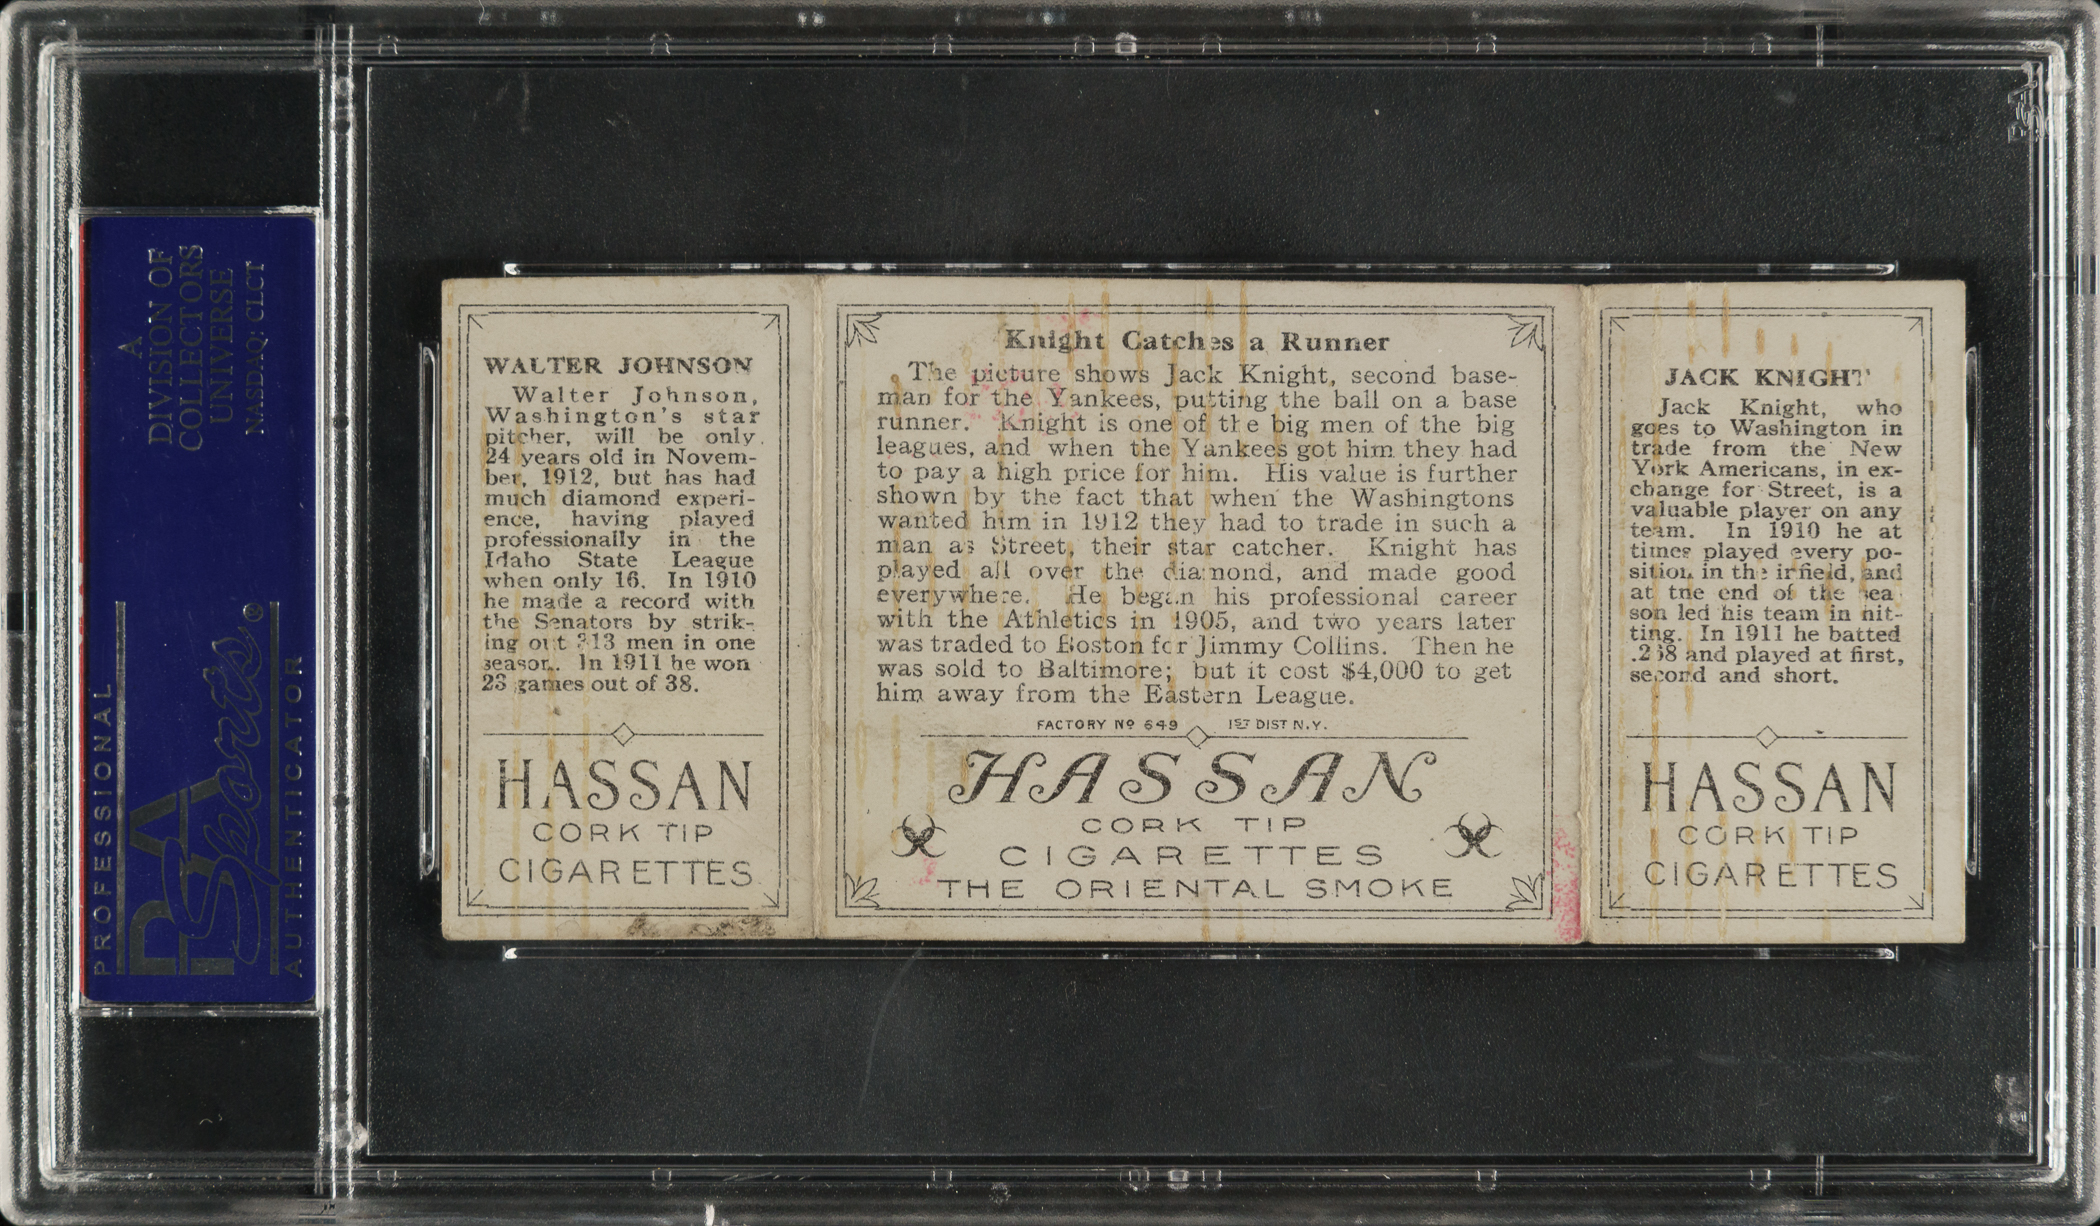 A
DIVISION OF
COLLECTORS
UNIVERSE
NASDAQ: CLCT
PROFESSIONAL
PSA
Sports®
AUTHENTICATOR
WALTER JOHNSON
Walter Johnson,
Washington's star
pitcher, will be only
24 years old in Novem-
ber, 1912, but has had
much diamond experi-
ence, having played
professionally in the
Idaho State League
when only 16. In 1910
he made a record with
the Senators by strik-
ing out 313 men in one
season. In 1911 he won
23 games out of 38.
HASSAN
CORK TIP
CIGARETTES
Knight Catches a Runner
The picture shows Jack Knight, second base-
man for the Yankees, putting the ball on a base
runner. Knight is one of the big men of the big
leagues, and when the Yankees got him they had
to pay a high price for him. His value is further
shown by the fact that when the Washingtons
wanted him in 1912 they had to trade in such a
man as Street, their star catcher. Knight has
played all over the diamond, and made good
everywhere. He began his professional career
with the Athletics in 1905, and two years later
was traded to Boston for Jimmy Collins. Then he
was sold to Baltimore; but it cost $4,000 to get
him away from the Eastern League.
FACTORY Nº 649 1ST DIST N.Y.
HASSAN
CORK TIP
CIGARETTES
THE ORIENTAL SMOKE
JACK KNIGHT
Jack Knight, who
goes to Washington in
trade from the New
York Americans, in ex-
change for Street, is a
valuable player on any
team. In 1910 he at
times played every po-
sition in the infield, and
at the end of the sea
son led his team in hit-
ting. In 1911 he batted
and played at first,
second and short.
HASSAN
CORK TIP
CIGARETTES
PSA